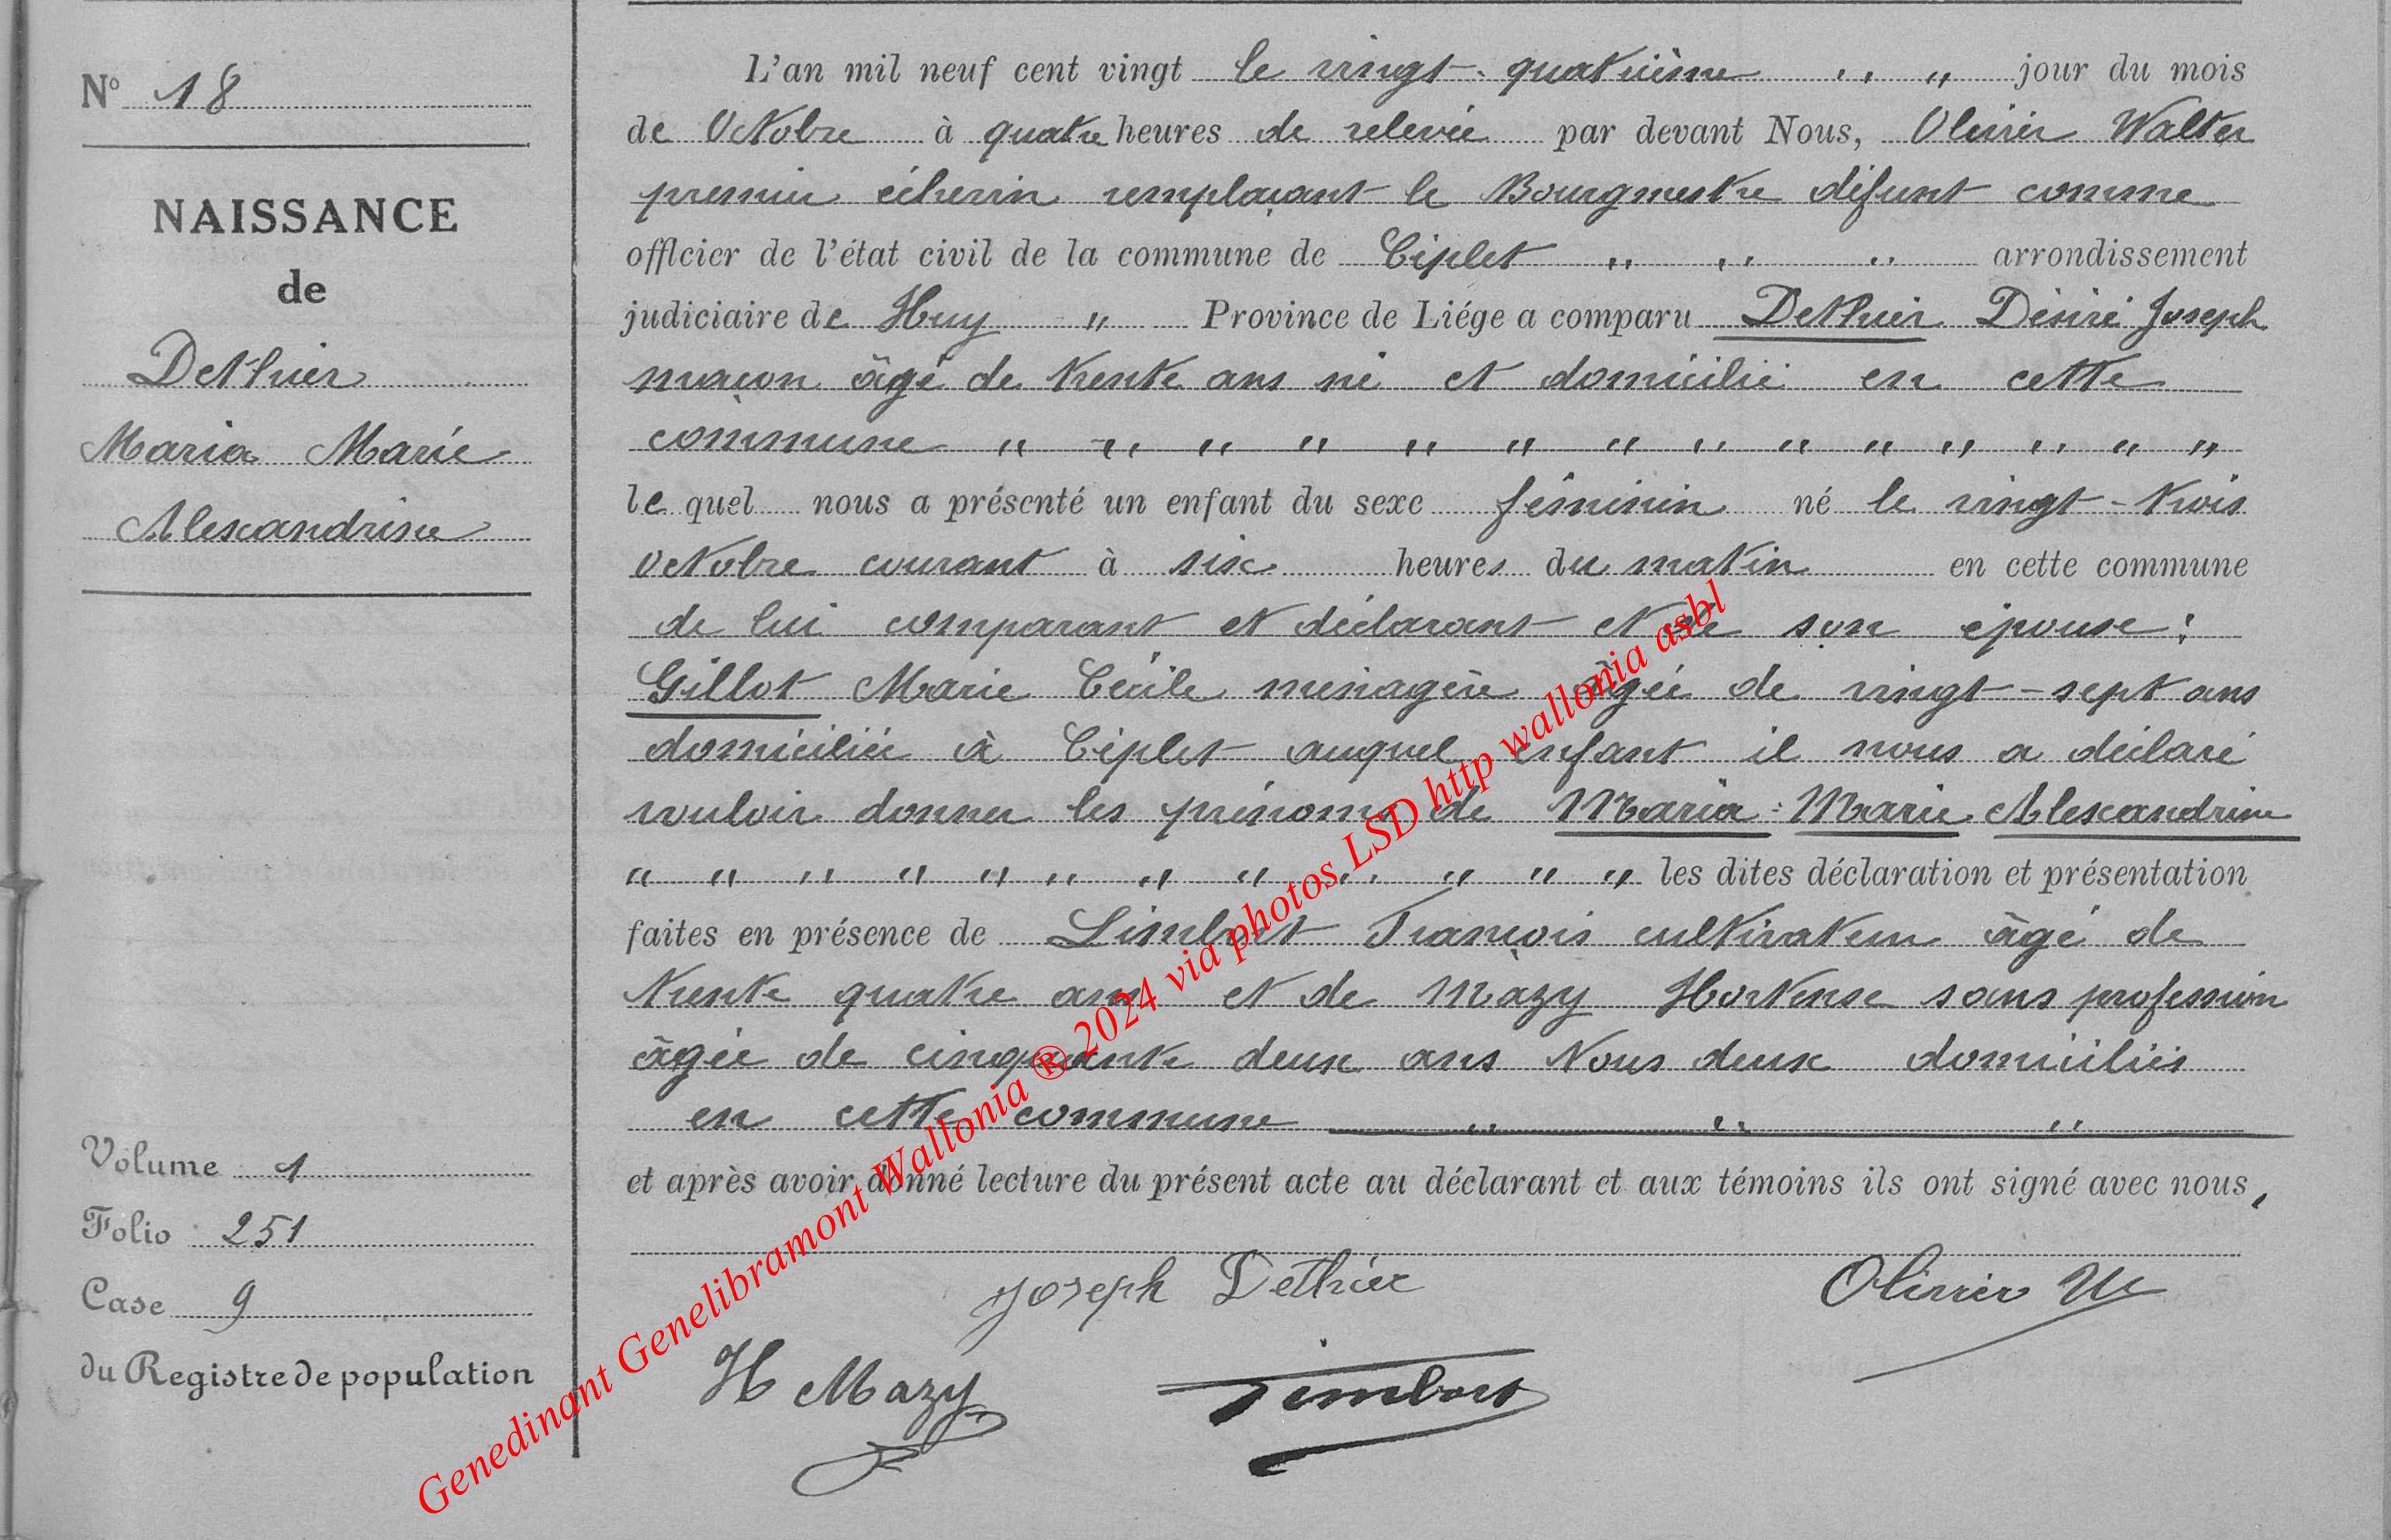 N° 18
NAISSANCE
de
Dethier
Maria Marie
Alexandrine
Volume 1
Folio 251
Case 9
du Registre de population
L'an mil neuf cent vingt le vingt-quatrième " " jour du mois
de Octobre à quatre heures de relevée par devant Nous, Olivier Walter
premier échevin remplaçant le Bourgmestre défunt comme
officier de l'état civil de la commune de Ciplet " " " arrondissement
judiciaire de Huy " Province de Liége a comparu Dethier Désiré Joseph
maçon âgé de trente ans né et domicilié en cette
commune " " " " " " " " " " " " " "
le quel nous a présenté un enfant du sexe féminin né le vingt-trois
octobre courant à six heures du matin en cette commune
de lui comparant et déclarant et de son épouse :
Gillot Marie Cécile ménagère âgée de vingt-sept ans
domiciliée à Ciplet auquel enfant il nous a déclaré
vouloir donner les prénoms de Maria Marie Alexandrine
" " " " " " " " " " " " les dites déclaration et présentation
faites en présence de Limbort François cultivateur âgé de
trente quatre ans et de Mazy Hortense sans profession
âgée de cinquante deux ans tous deux domiciliés
en cette commune " " "
et après avoir donné lecture du présent acte au déclarant et aux témoins ils ont signé avec nous,
Joseph Dethier
Olivier W
H Mazy
Limbort
Genedinant Genelibramont Wallonia ® 2024 via photos LSD http wallonia asbl